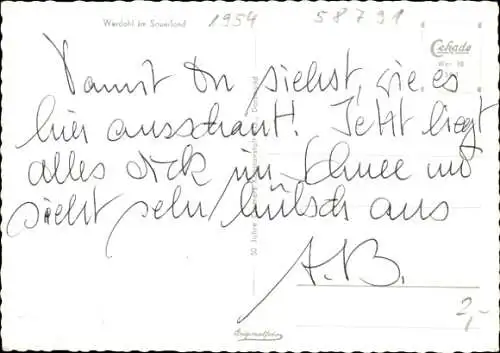 Werdohl im Sauerland
1954
58791
Cekade
Damit Du siehst, wie es
hier ausschaut! Jetzt liegt
alles dick im Schnee und
sieht sehr hübsch aus
A.B.
2,-
50 Jahre
Originalfoto